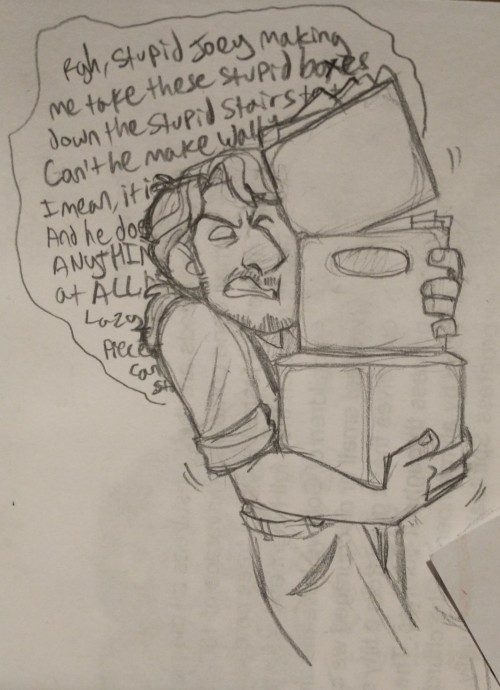 Rgh, stupid Joey making
me take these stupid boxes
down the stupid stairs
Can't he make Wally
I mean, it i
And he do
ANYTHIN
at ALL!
Lazy
Piece
can